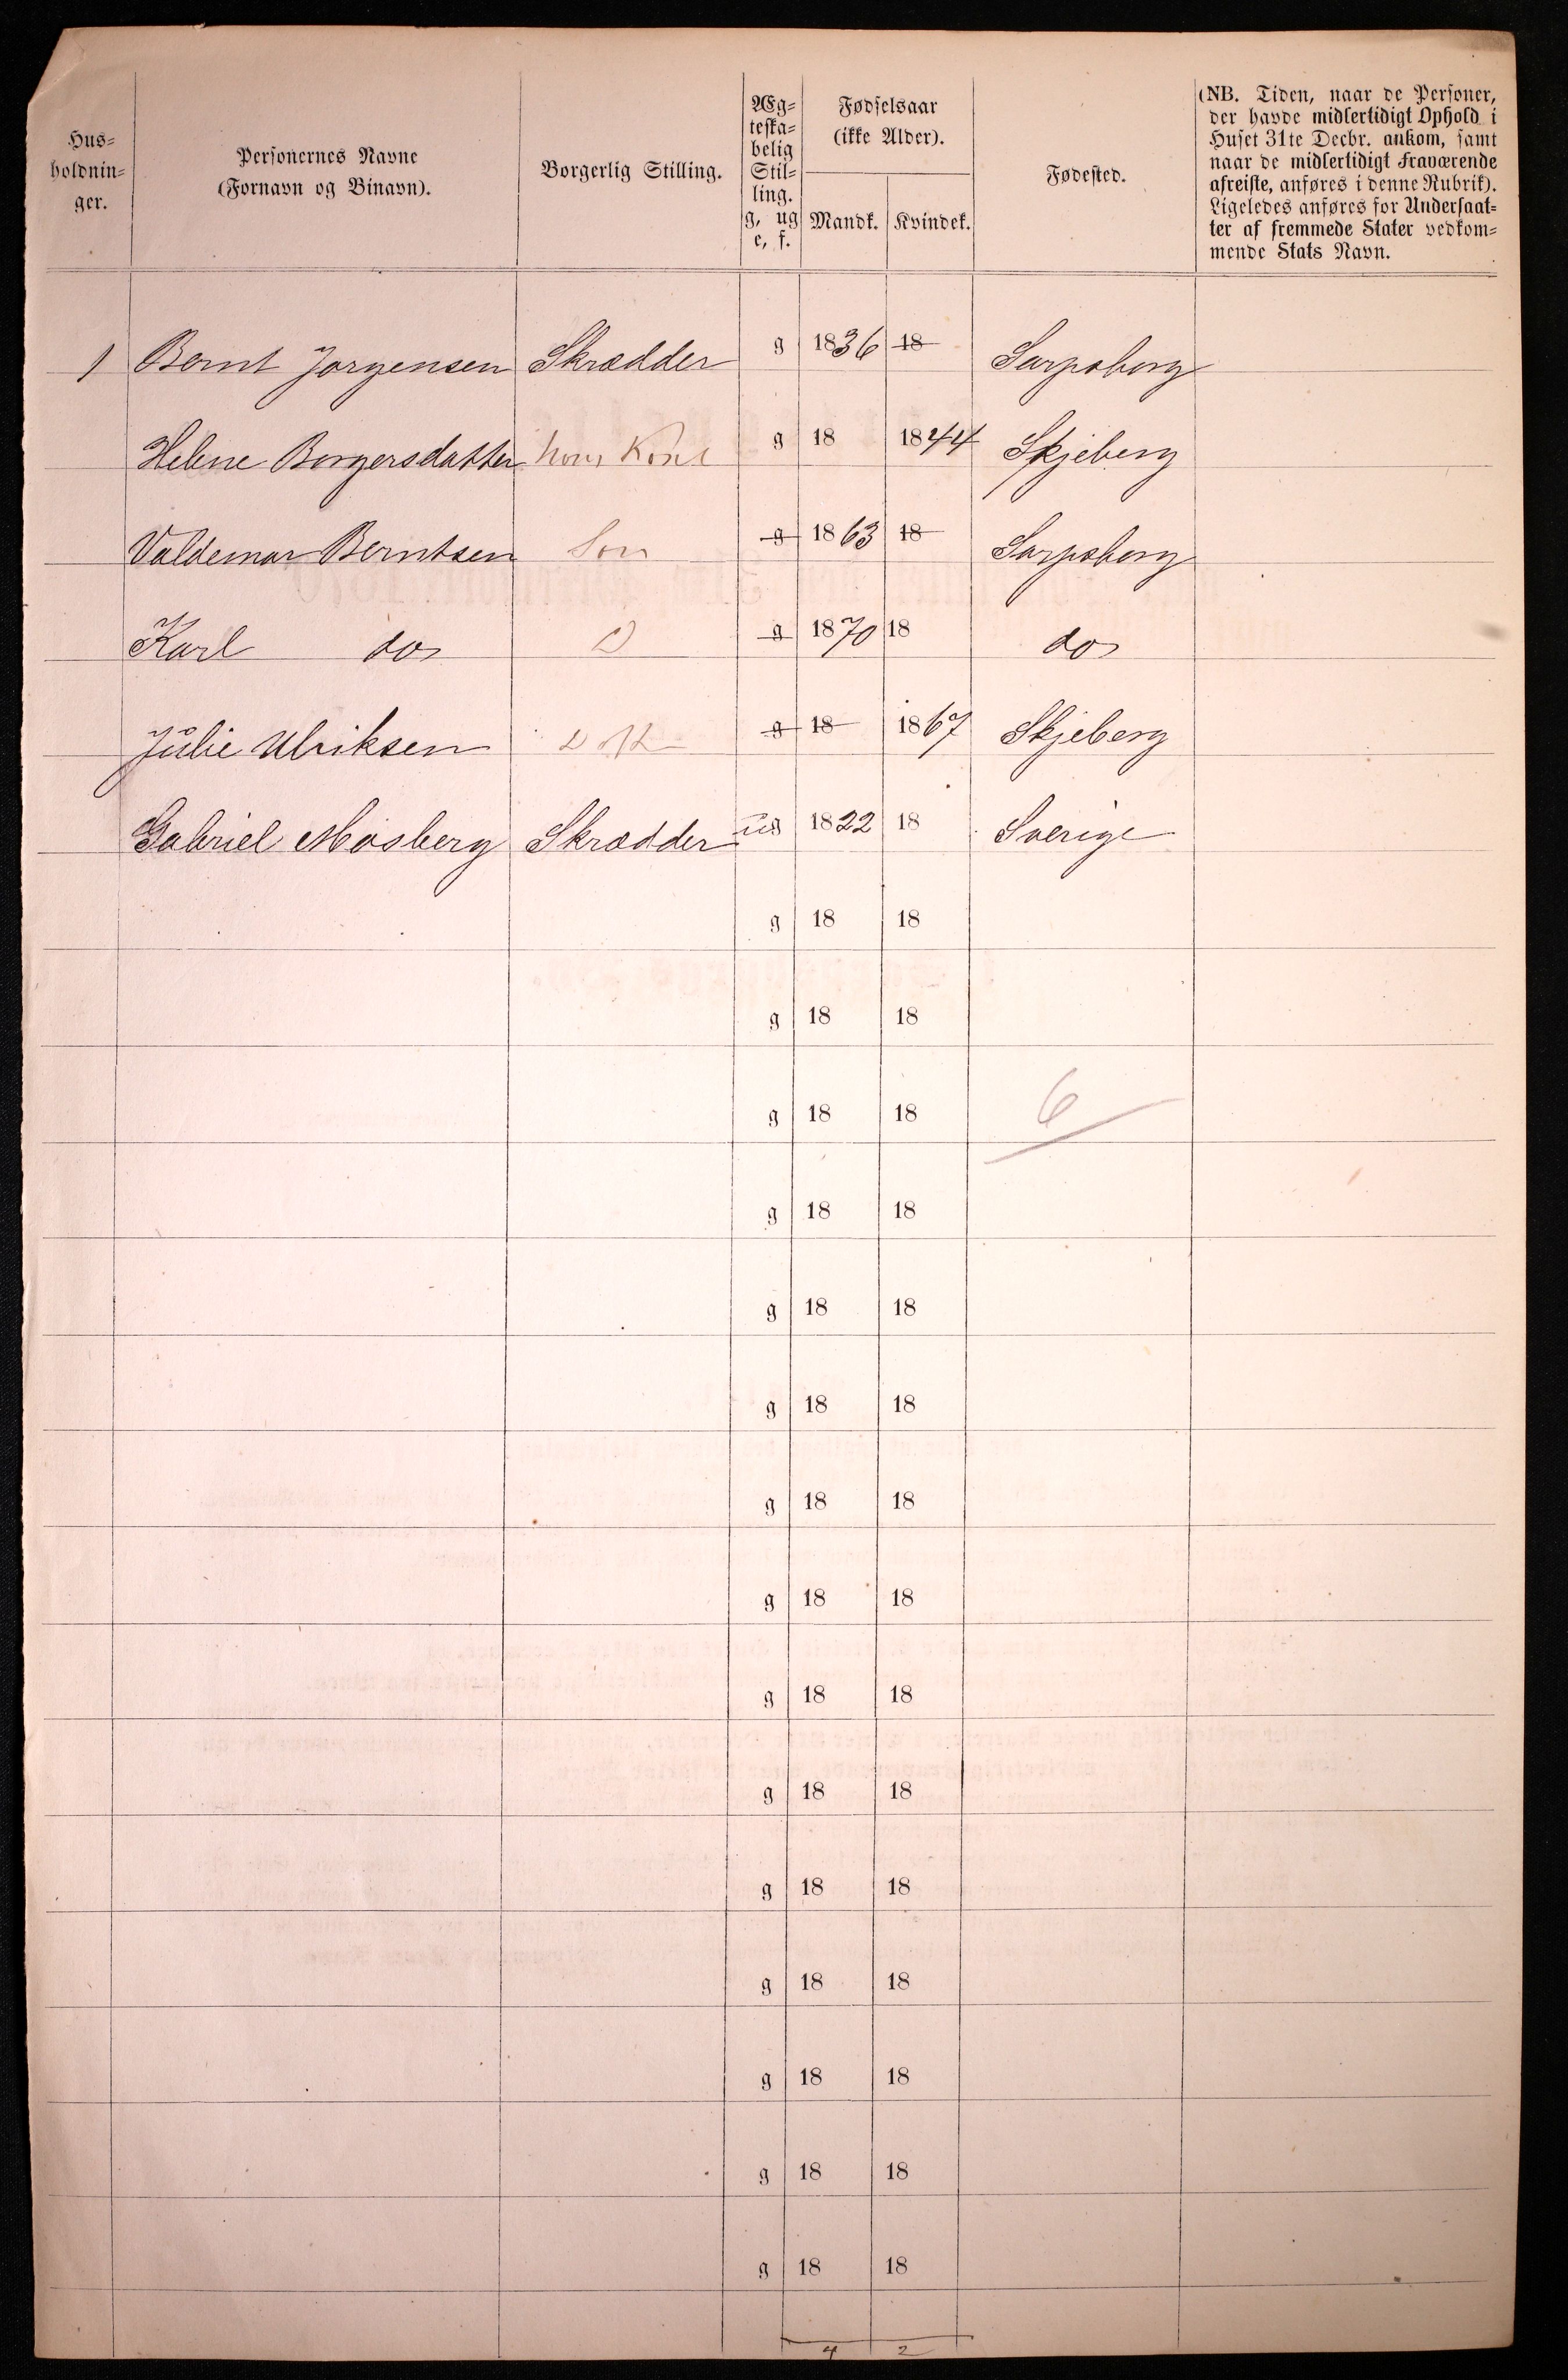 Hus=
holdnin=
ger.
Personernes Navne
(Fornavn og Binavn).
Borgerlig Stilling.
Æg=
teska=
belig
Stil=
ling.
g, ug
e, f.
Fødselsaar
(ikke Alder).
Mandk. Kvindek.
Fødested.
(NB. Tiden, naar de Personer,
der havde midlertidigt Ophold i
Huset 31te Decbr. ankom, samt
naar de midlertidigt fraværende
afreiste, anføres i denne Rubrik).
Ligeledes anføres for Undersaat=
ter af fremmede Stater vedkom=
mende Stats Navn.
1 Bernt Jørgensen Skrædder g 1836 18 Sarpsborg
Helene Borgersdatter hans Kone g 18 1844 Skjeberg
Valdemar Berntsen Søn g 1863 18 Sarpsborg
Karl do g 1870 18 do
Julie Ulriksen g 18 1867 Skjeberg
Gabriel Mosberg Skrædder ug 1822 18 Sverige
g 18 18
g 18 18
g 18 18 6
g 18 18
g 18 18
g 18 18
g 18 18
g 18 18
g 18 18
g 18 18
g 18 18
g 18 18
g 18 18
g 18 18
g 18 18
4 2